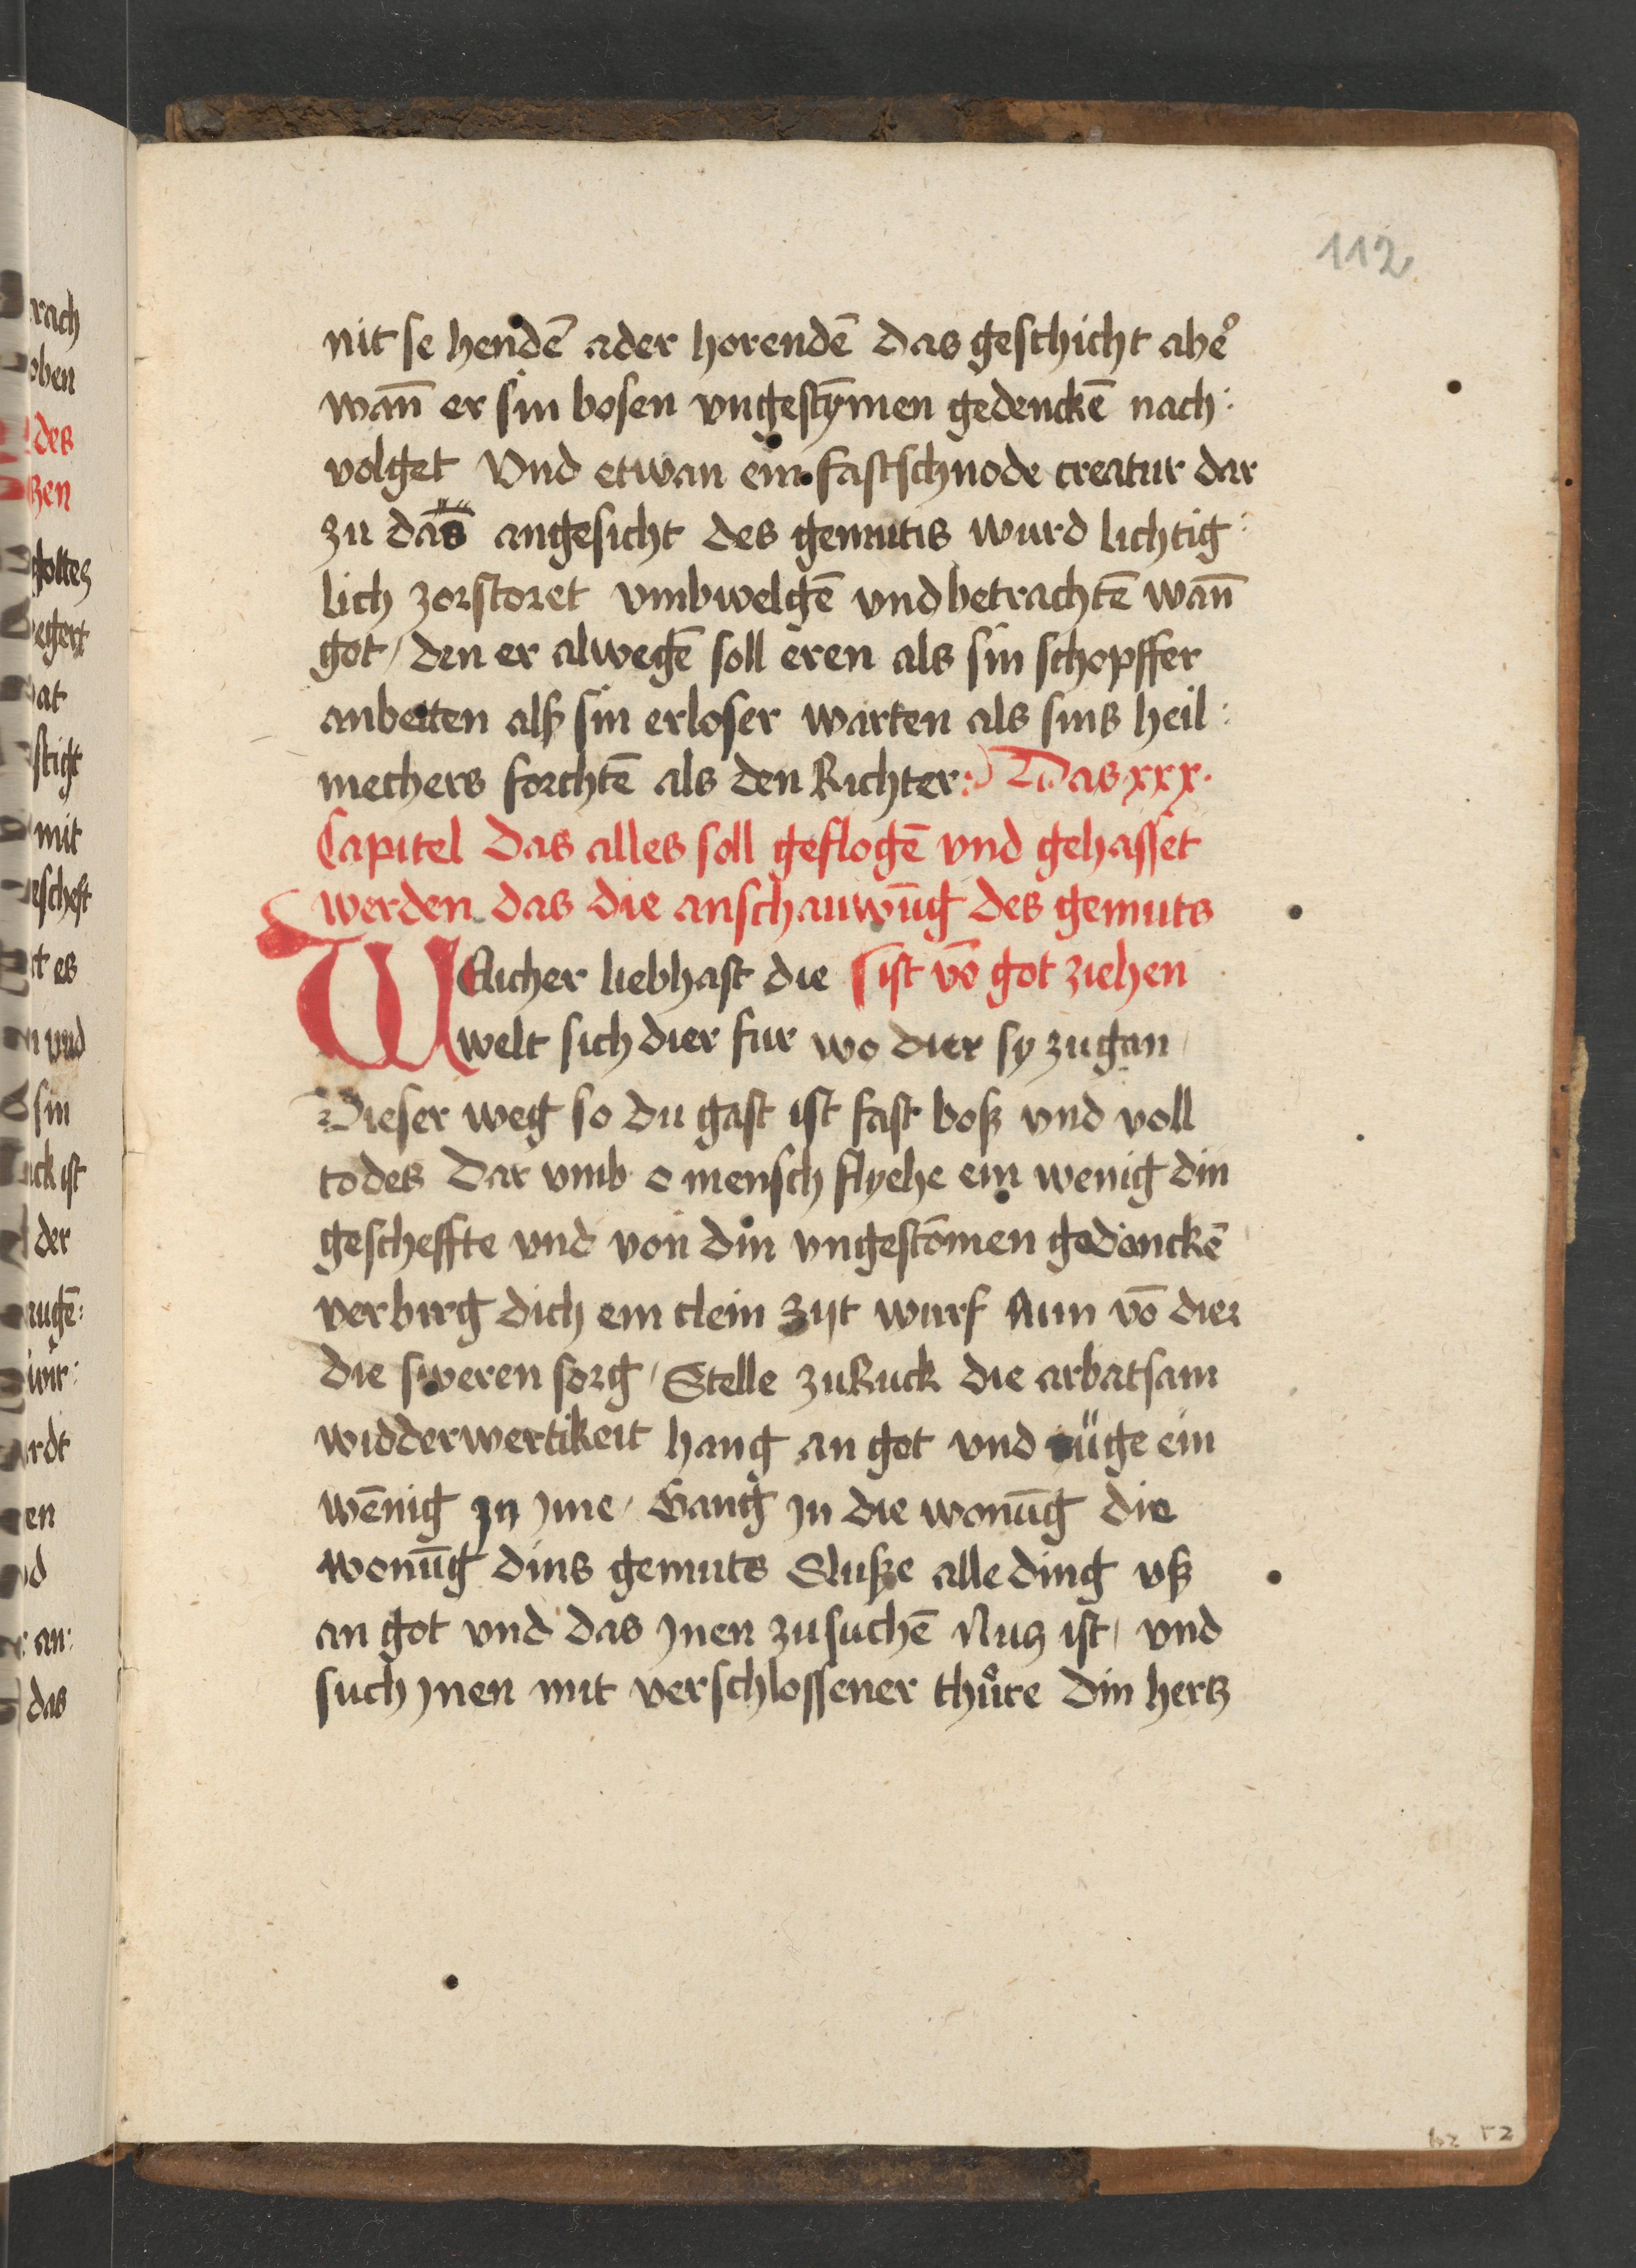 112
nit se hendē ader horendē das geschicht abeͦ
wañ er sin bosen vngestÿmen gedenckē nach:
volget Vnd etwan ein fastschnode creatur dar
zu das angesicht des gemutis wurd lichtig:
lich zorstoret vmbwelgē vnd betrachtē wañ
got / den er alwegē soll eren als sin schopffer
anbetten alß sin erloser warten als sins heil:
mechers forchtē als den Richter: Das xxx.
Capitel das alles soll geflogē vnd gehasset
werden das die anschauwūg des gemuts
WElicher liebhast die ist vō got ziehen
welt sich dier fur wo dier sy zugan /
Dieser weg so du gast ist fast boß vnd voll
todes Dar vmb o mensch flyehe ein wenig din
gescheffte vnd von din vngestōmen gedanckē
verbirg dich ein clein zyt wurf Nun vō dier
die sweren sorg / Stelle zuRuck die arbatsam
widderwertikeit hang an got vnd rüge ein
wēnig jn jme / Gang jn die wonūg die
wonūg dins gemuts Slusze alle ding vß
an got vnd das jnen zusuchē Nutz ist / vnd
such jnen mit verschlossener thůre din hertz